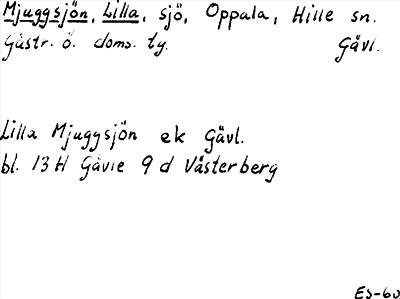 Mjuggsjön, Lilla, sjö, Oppala, Hille sn.
Gästr. ö. doms. tg. Gävl.
Lilla Mjuggsjön ek Gävl.
bl. 13 H Gävle 9 d Västerberg
ES-60